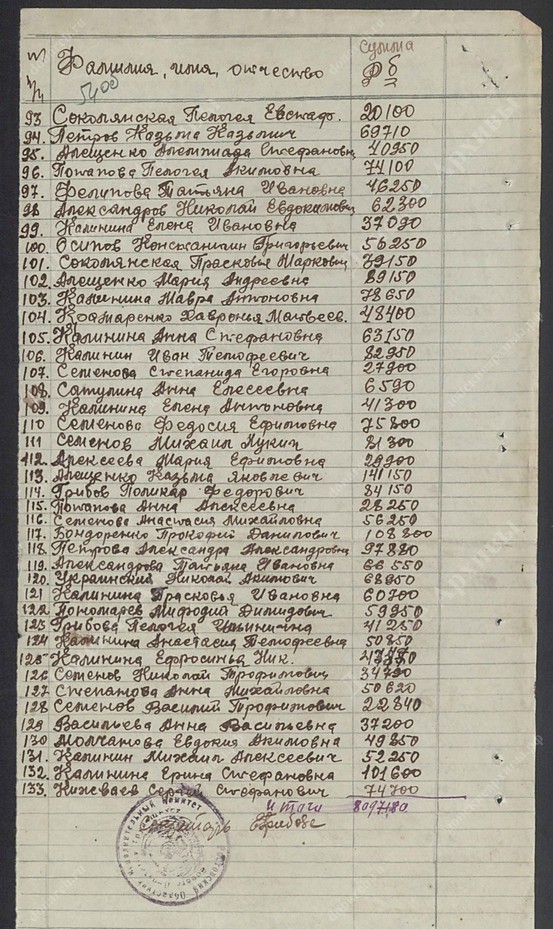 № п/п Фамилия, имя, отчество сумма Рб
5400
93 Соколянская Пелогея Евстаф. 20100
94. Петров Казьма Казьмич 69710
95. Алещенко Алемпиада Стефановн 40950
96. Потапова Пелогея Акимовна 74100
97. Фелипова Татьяна Ивановна 46250
98 Александров Николай Евдокимович 62300
99. Калинина Елена Ивановна 37090
100. Осипов Константин Григорьевич 56250
101. Соколянская Прасковья Маркович 39150
102. Алещенко Мария Андреевна 89150
103. Калинина Мавра Антоновна 78650
104. Хавронья Матвеев. 48400
105. Калинина Анна Стефановна 63150
106. Калинин Иван Телюфеевич 82950
107. Семенова Степанида Егоровна 27900
108. Сатулина Анна Елесеевна 6590
109. Калинина Елена Антоновна 41300
110 Семенова Федосия Ефимовна 75800
111 Семенов Михаил Лукич 81300
112. Алексеева Мария Ефимовна 29200
113. Алещенко Казьма Яковлевич 141150
114. Грибов Поликар Федорович 84150
115. Потапова Анна Алексеевна 28250
116. Семенова Анастасия Михайловна 56250
117. Бондоренко Прокофий Данилович 108800
118. Петрова Александра Александровн 97880
119. Александрова Татьяна Ивановна 66550
120. Украинский Николай Акимович 68950
121 Калинина Прасковья Ивановна 60700
122 Пономарев Мифодий Димидович 59950
123 Грибова Пелогея Ильинична 41250
124 Калинина Анастасия Телюфеевна 50850
125 Калинина Ефросинья Ник.
126 Семенов Николай Трофимович 34700
127 Степанова Анна Михайловна 50620
128 Семенов Василий Трофимович 22840
129 Васильева Анна Васильевна 37200
130 Молчанова Евдокия Акимовна 49850
131. Калинин Михаил Алексеевич 52250
132. Калинина Ерина Стефановна 101600
133. Нижеваев Сергей Стефанович 74700
Итого 8097180
секретарь Грибова